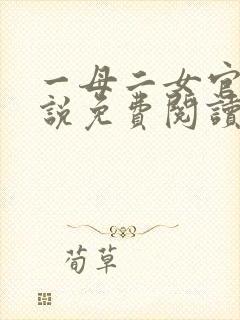 一母二女官
説免費閱讀
荀草